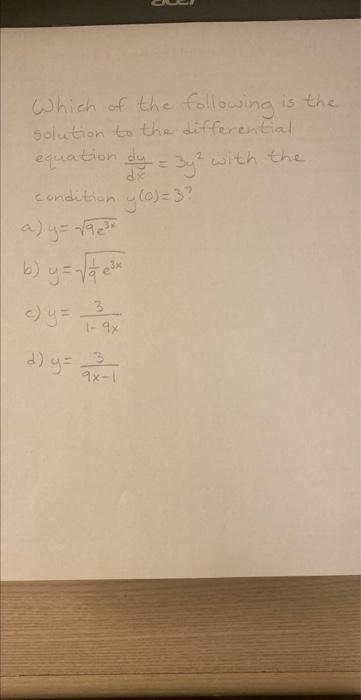 Which of the following is the
solution to the differential
equation dy/dx = 3y² with the
condition y(0)=3?
a) y= √9e³ˣ
b) y= √1/9 e³ˣ
c) y= 3/1-9x
d) y= 3/9x-1